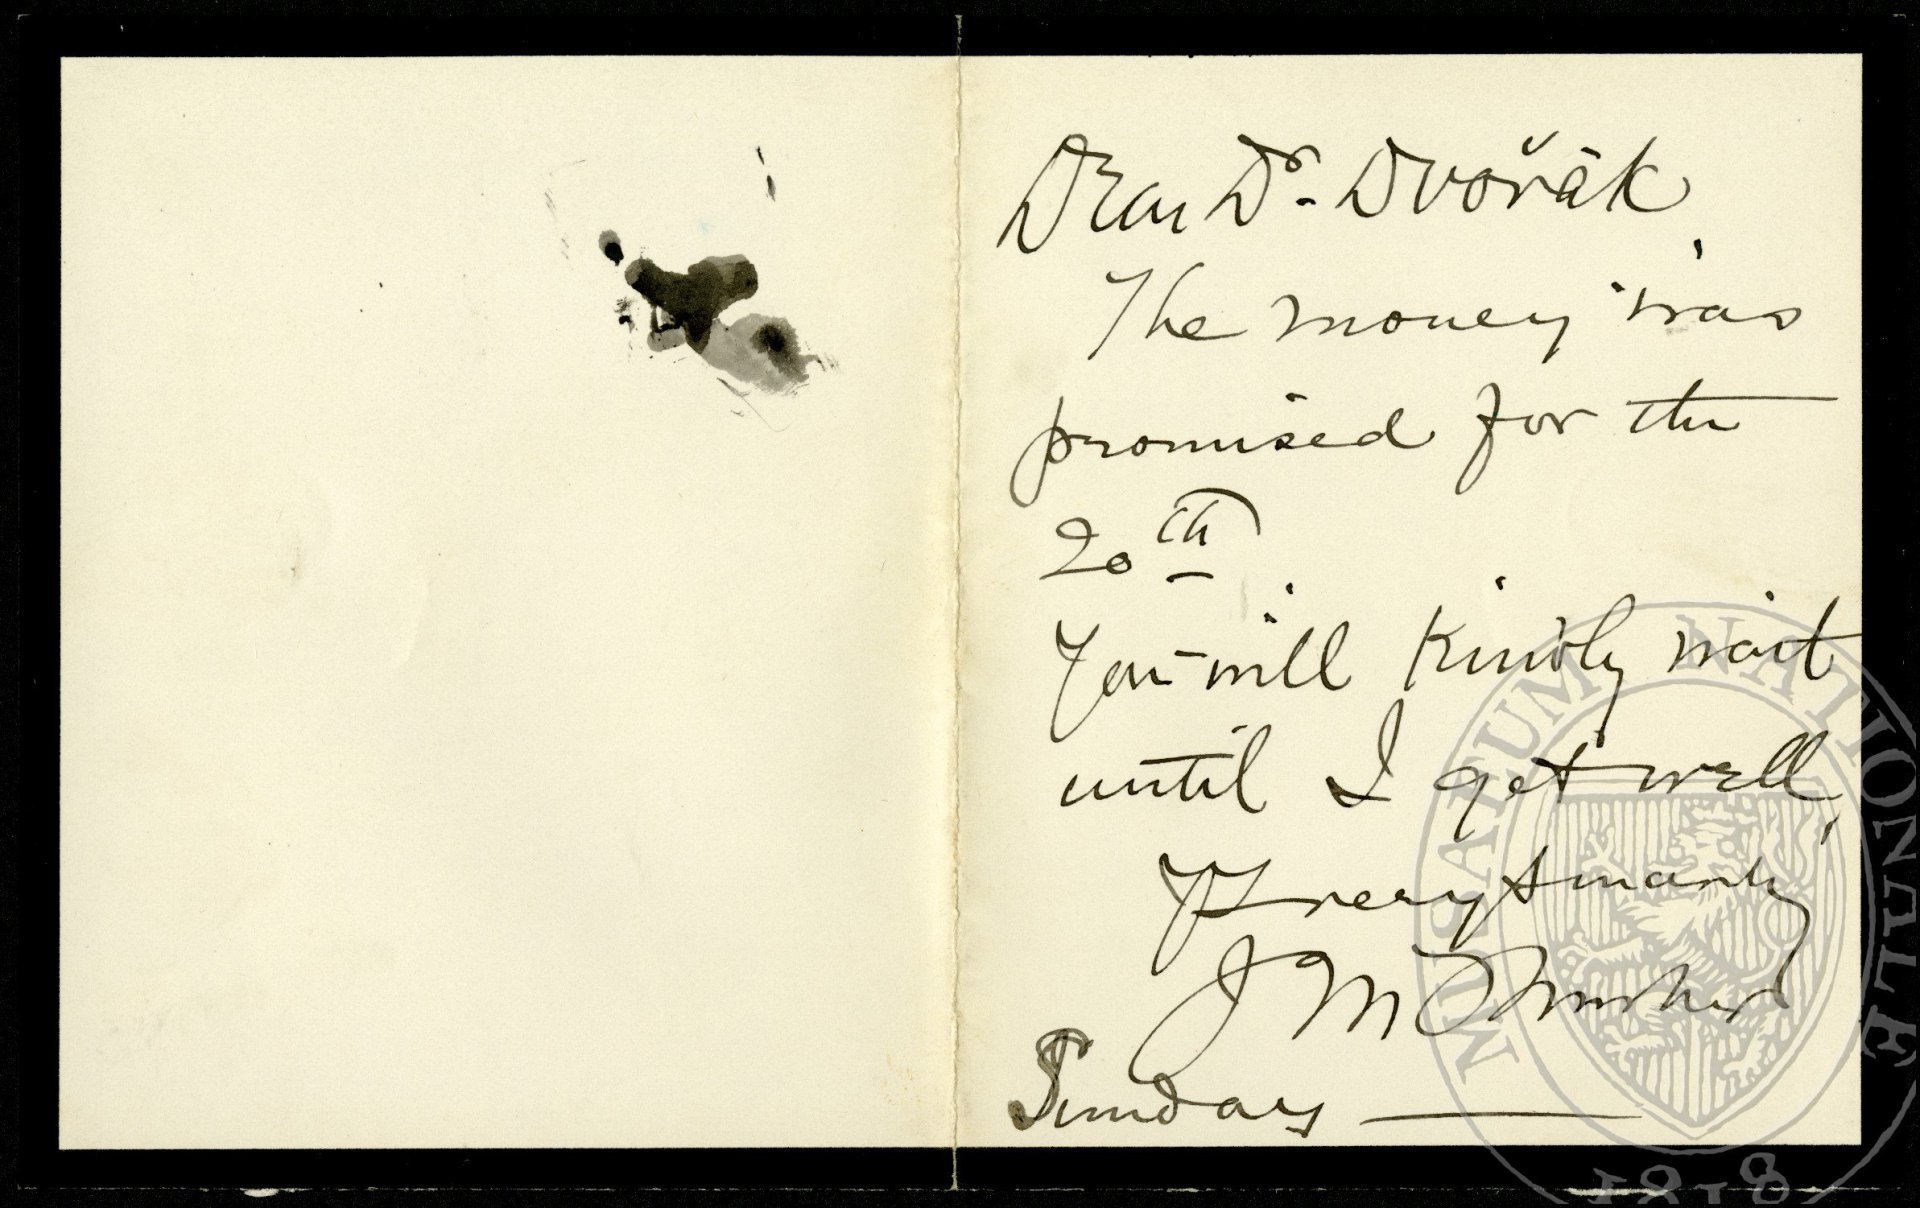 Dear Dr. Dvořák
The money was
promised for the
20th
You will kindly wait
until I get well,
Yrs very smartly
J M Thurber
Sunday
MUSAEUM NATIONALE
1818